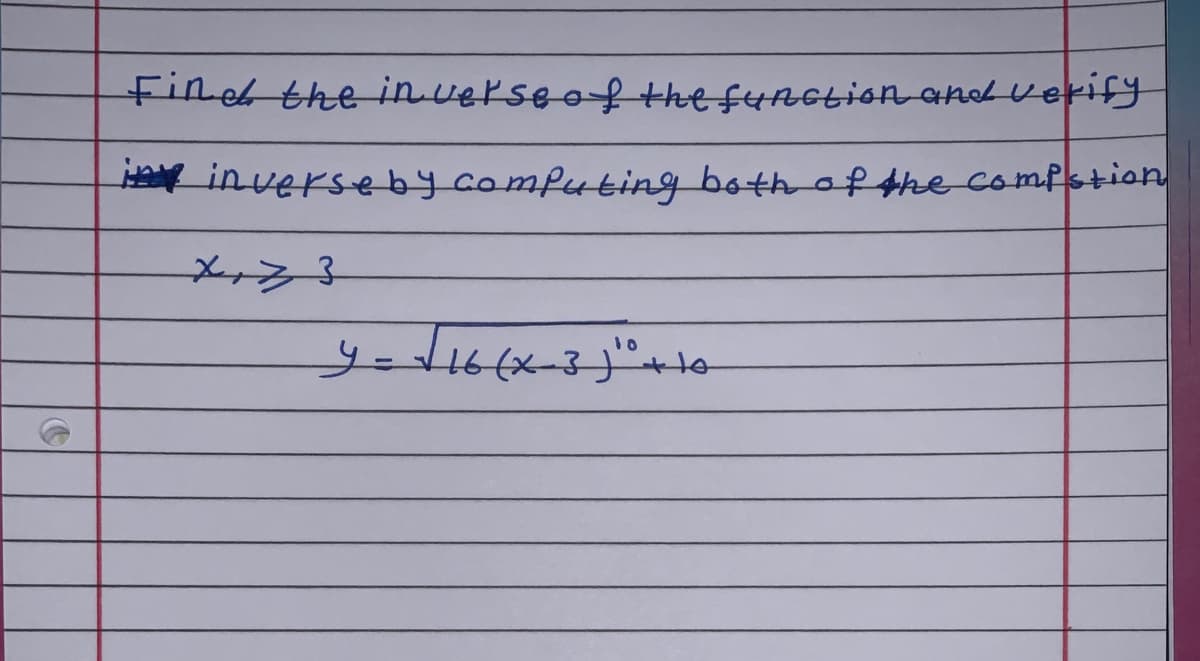 Find the inverse of the function and verify
inverse by computing both of the compstion
x, ⩾ 3
y = √16 (x-3)¹⁰ + 10